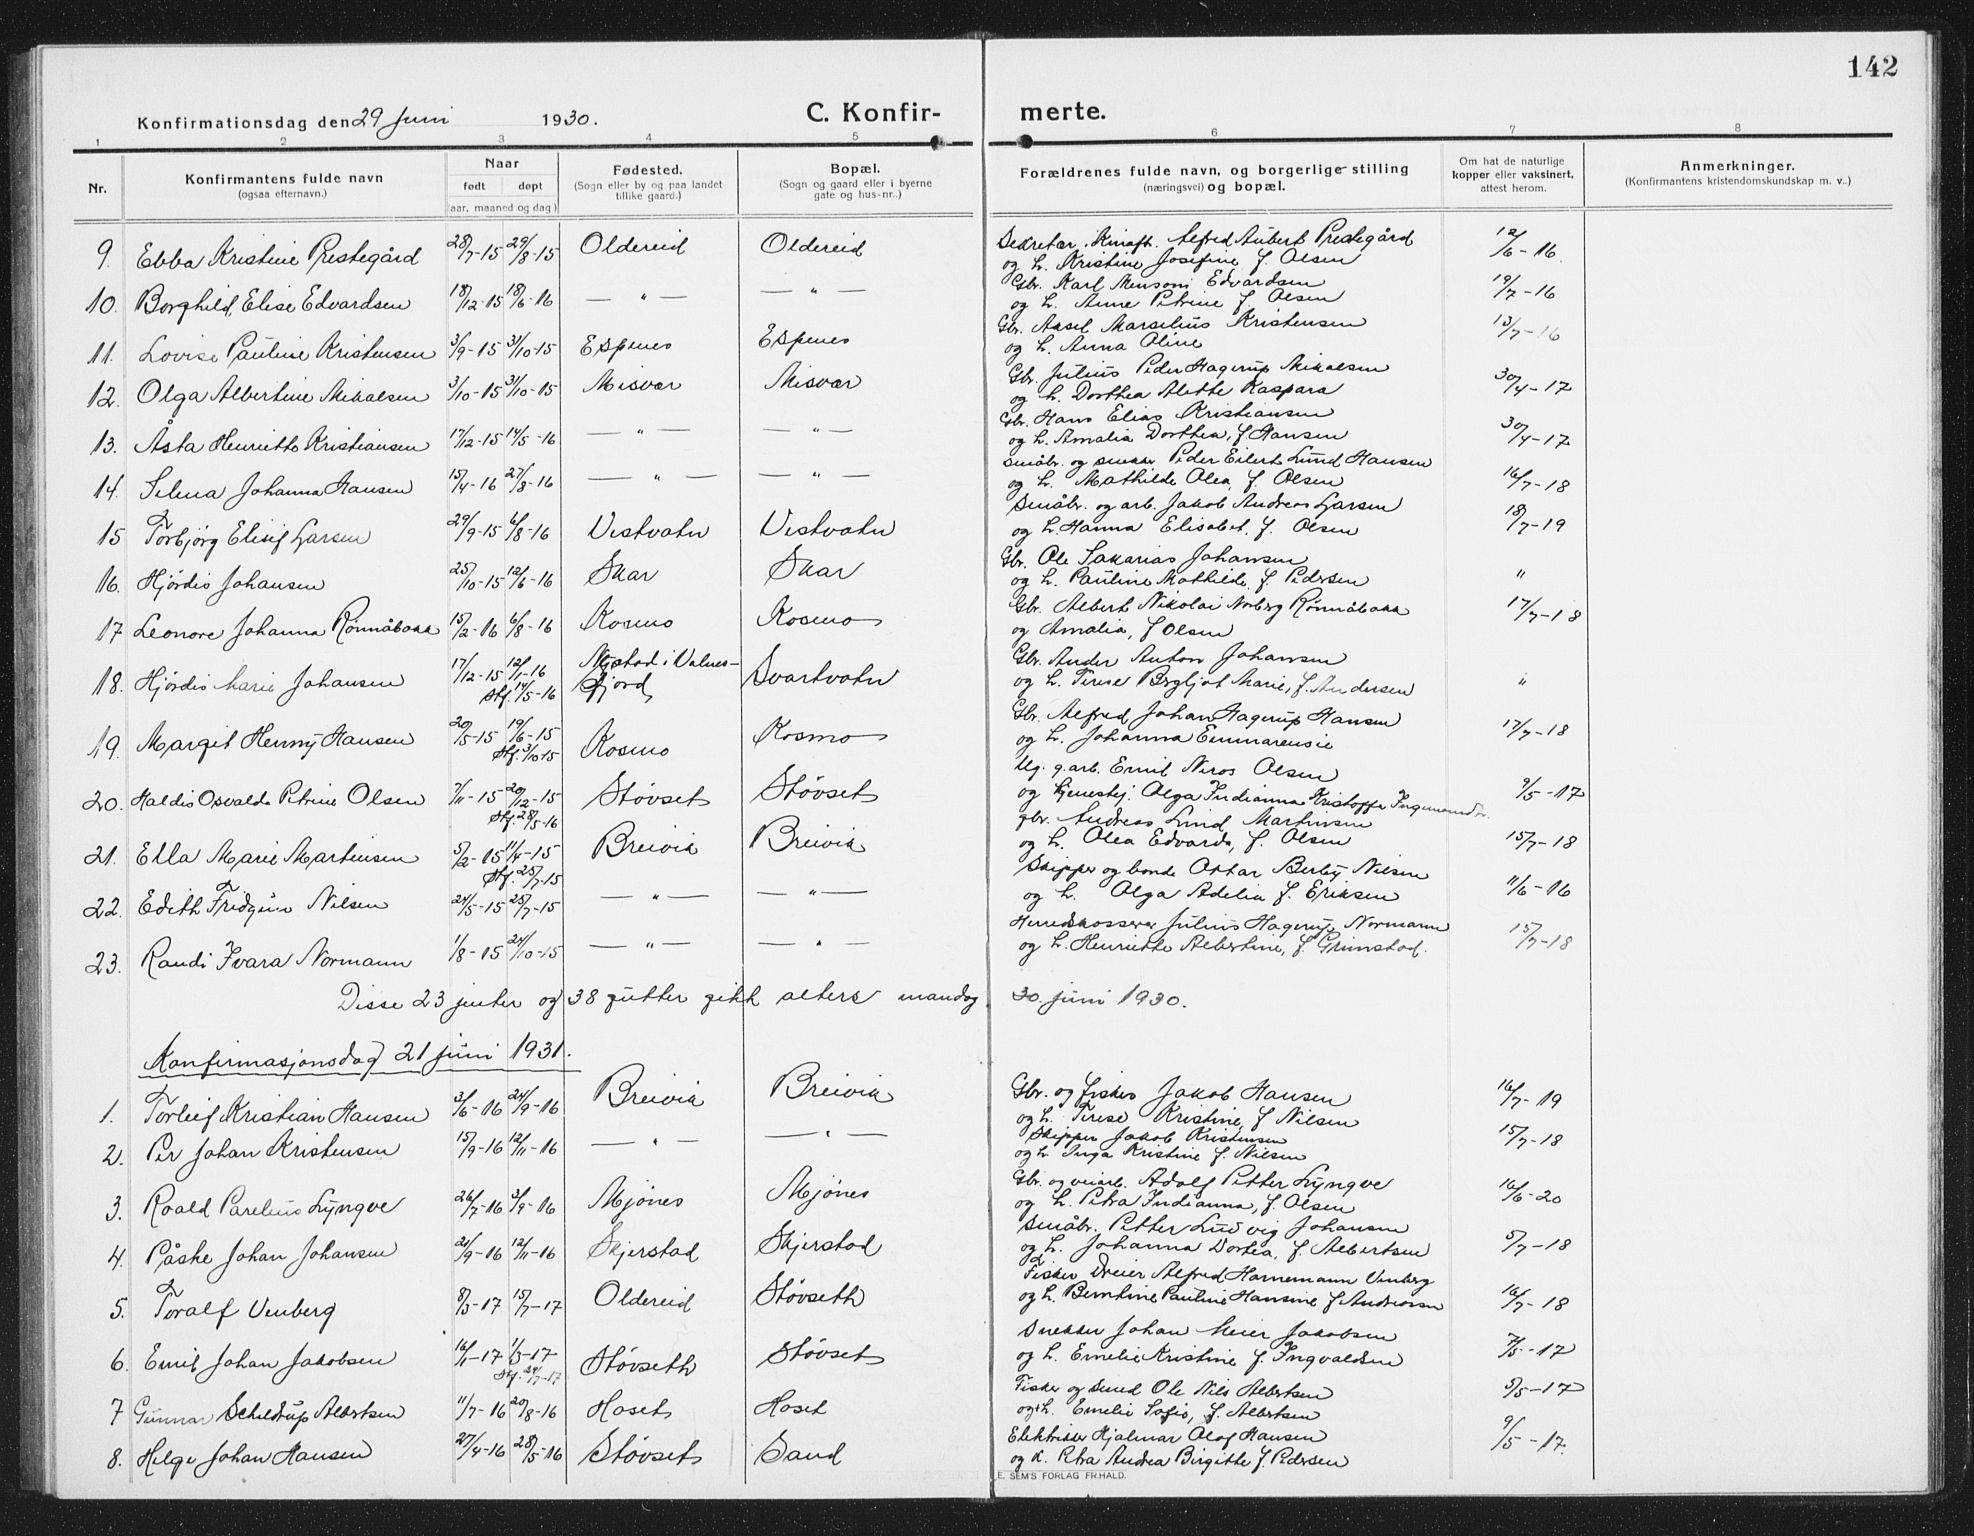 142
Konfirmationsdag den 29 Juni 1930. C. Konfir- merte.
1 2 3 4 5 6 7 8
Nr. Konfirmantens fulde navn (ogsaa efternavn.) Naar født døpt (aar, maaned og dag) Fødested. (Sogn eller by og paa landet tillike gaard.) Bopæl. (Sogn og gaard eller i byerne gate og hus-nr..) Forældrenes fulde navn, og borgerlige stilling (næringsvei) og bopæl. Om hat de naturlige kopper eller vaksinert, attest herom. Anmerkninger. (Konfirmantens kristendomskundskap m. v..)
9. Ebba Kristine Prestegård 28/7-15 29/8-15 Oldereid Oldereid Sekretær Alfred Aubert Prestegård 12/6-16
og h. Kristine Josefine f. Olsen
10. Borghild Elise Edvardsen 18/12-15 18/6-16 — " — — " — Gbr. Karl Mensoni Edvardsen 19/7-16
og h. Anne Petrine f. Olsen
11. Lovise Pauline Kristensen 3/9-15 31/10-15 Espenes Espenes Gbr. Aksel Marselius Kristensen 13/7-16
og h. Anna Oline
12. Olga Albertine Mikalsen 3/10-15 31/10-15 Misvær Misvær Gbr. Julius Peder Hagerup Mikalsen 30/4-17
og h. Dorthea Alette Kaspara
13. Åsta Henriette Kristiansen 17/12-15 14/5-16 — " — — " — Gbr. Hans Elias Kristiansen 30/4-17
og h. Amalia Dorthea, f. Hansen
14. Selma Johanna Hansen 15/4-16 27/8-16 — " — — " — Småbr. og snekker Peder Eilert Lund Hansen 16/7-18
og h. Mathilde Olea, f. Olsen
15 Torbjørg Elisif Larsen 29/9-15 6/8-16 Vestvatn Vestvatn Småbr. og arb. Jakob Andreas Larsen 18/7-19
og h. Hanna Elisabet, f. Olsen
16. Hjørdis Johansen 25/10-15 12/6-16 Skar Skar Gbr. Ole Sakarias Johansen "
og h. Pauline Mathilde, f. Pedersen
17 Leonore Johanna Rønnåbakk 15/2-16 6/8-16 Kosmo Kosmo Gbr. Albert Nikolai Norberg Rønnåbakk 17/7-18
og Amalia, f Olsen
18. Hjørdis Marie Johansen 17/12-15 12/1-16 Nystad i Valnes- Svartvatn Gbr. Ander Anton Johansen "
Stf. 14/5-16 fjord og h. Terese Bergljot Marie, f. Andersen
19. Margit Henny Hansen 20/5-15 19/6-15 Kosmo Kosmo Gbr. Alfred Johan Hagerup Hansen 17/7-18
Stf. 3/10-15 og h. Johanna Emmarensie
20. Haldis Osvalda Petrine Olsen 7/11-15 20/12-15 Støvset Støvset Ug. g.arb. Emil Niros Olsen 9/5-17
Stf. 28/5-16 og tjenestpj. Olga Indianna Kristoffa
21. Ella Marie Martinsen 5/2-15 11/4-15 Breivik Breivik gbr. Andreas Lund Martinsen 15/7-18
Stf. 25/7-15 og h. Olea Edvarda, f. Olsen
22. Edith Fridgun Nilsen 24/5-15 25/7-15 — " — — " — Skipper og bonde Ottar Berby Nilsen 11/6-16
og h. Olga Adelia f. Eriksen
23. Randi Ivara Normann 1/8-15 24/10-15 — " — — " — Herredskasserer Julius Hagerup Normann 15/7-18
og h. Henriette Albertine, f. Grimstad.
Disse 23 jenter og 38 gutter gikk alters mandag 30. juni 1930.
Konfirmasjonsdag 21 juni 1931.
1. Torleif Kristian Hansen 3/6-16 24/9-16 Breivik Breivik Gbr. og fisker Jakob Hansen 16/7-19
og h. Terese Kristine, f Nilsen
2. Per Johan Kristensen 15/9-16 12/11-16 — " — — " — Skipper Jakob Kristensen 15/7-18
og h Inga Kristine f. Nilsen
3. Roald Parelius Lyngve 26/7-16 3/9-16 Mjønes Mjønes Gbr. og veiarb. Adolf Petter Lyngve 16/6-20
og h. Petra Indianna, f. Olsen
4. Påske Johan Johansen 21/9-16 12/11-16 Skjerstad Skjerstad Småbr. Petter Ludvig Johansen 5/7-18
og h. Johanna Dortea, f. Albertsen
5. Toralf Venberg 8/3-17 15/7-17 Oldereid Støvseth Fisker Dreier Alfred Hornemann Venberg 16/7-18
og h. Berntine Pauline Hansine f Andreassen
6. Emil Johan Jakobsen 16/1-17 1/3-17 Støvseth Støvset Snekker Johan Meier Jakobsen 7/5-17
Stf. 24/7-17 og h. Emelie Kristine f. Ingvaldsen
7 Gunnar Schildrup Albertsen 11/7-16 20/8-16 Hoset Hoset Fisker og smed Ole Nils Albertsen 5/5-17
og h. Emelie Sofie, f. Albertsen
8. Helge Johan Hansen 27/4-16 28/5-16 Støvset Sand Elektriker Hjalmar Olaf Hansen 9/5-17.
og h. Petra Andrea Birgitte f. Pedersen
E. SEM'S FORLAG FR.HALD.